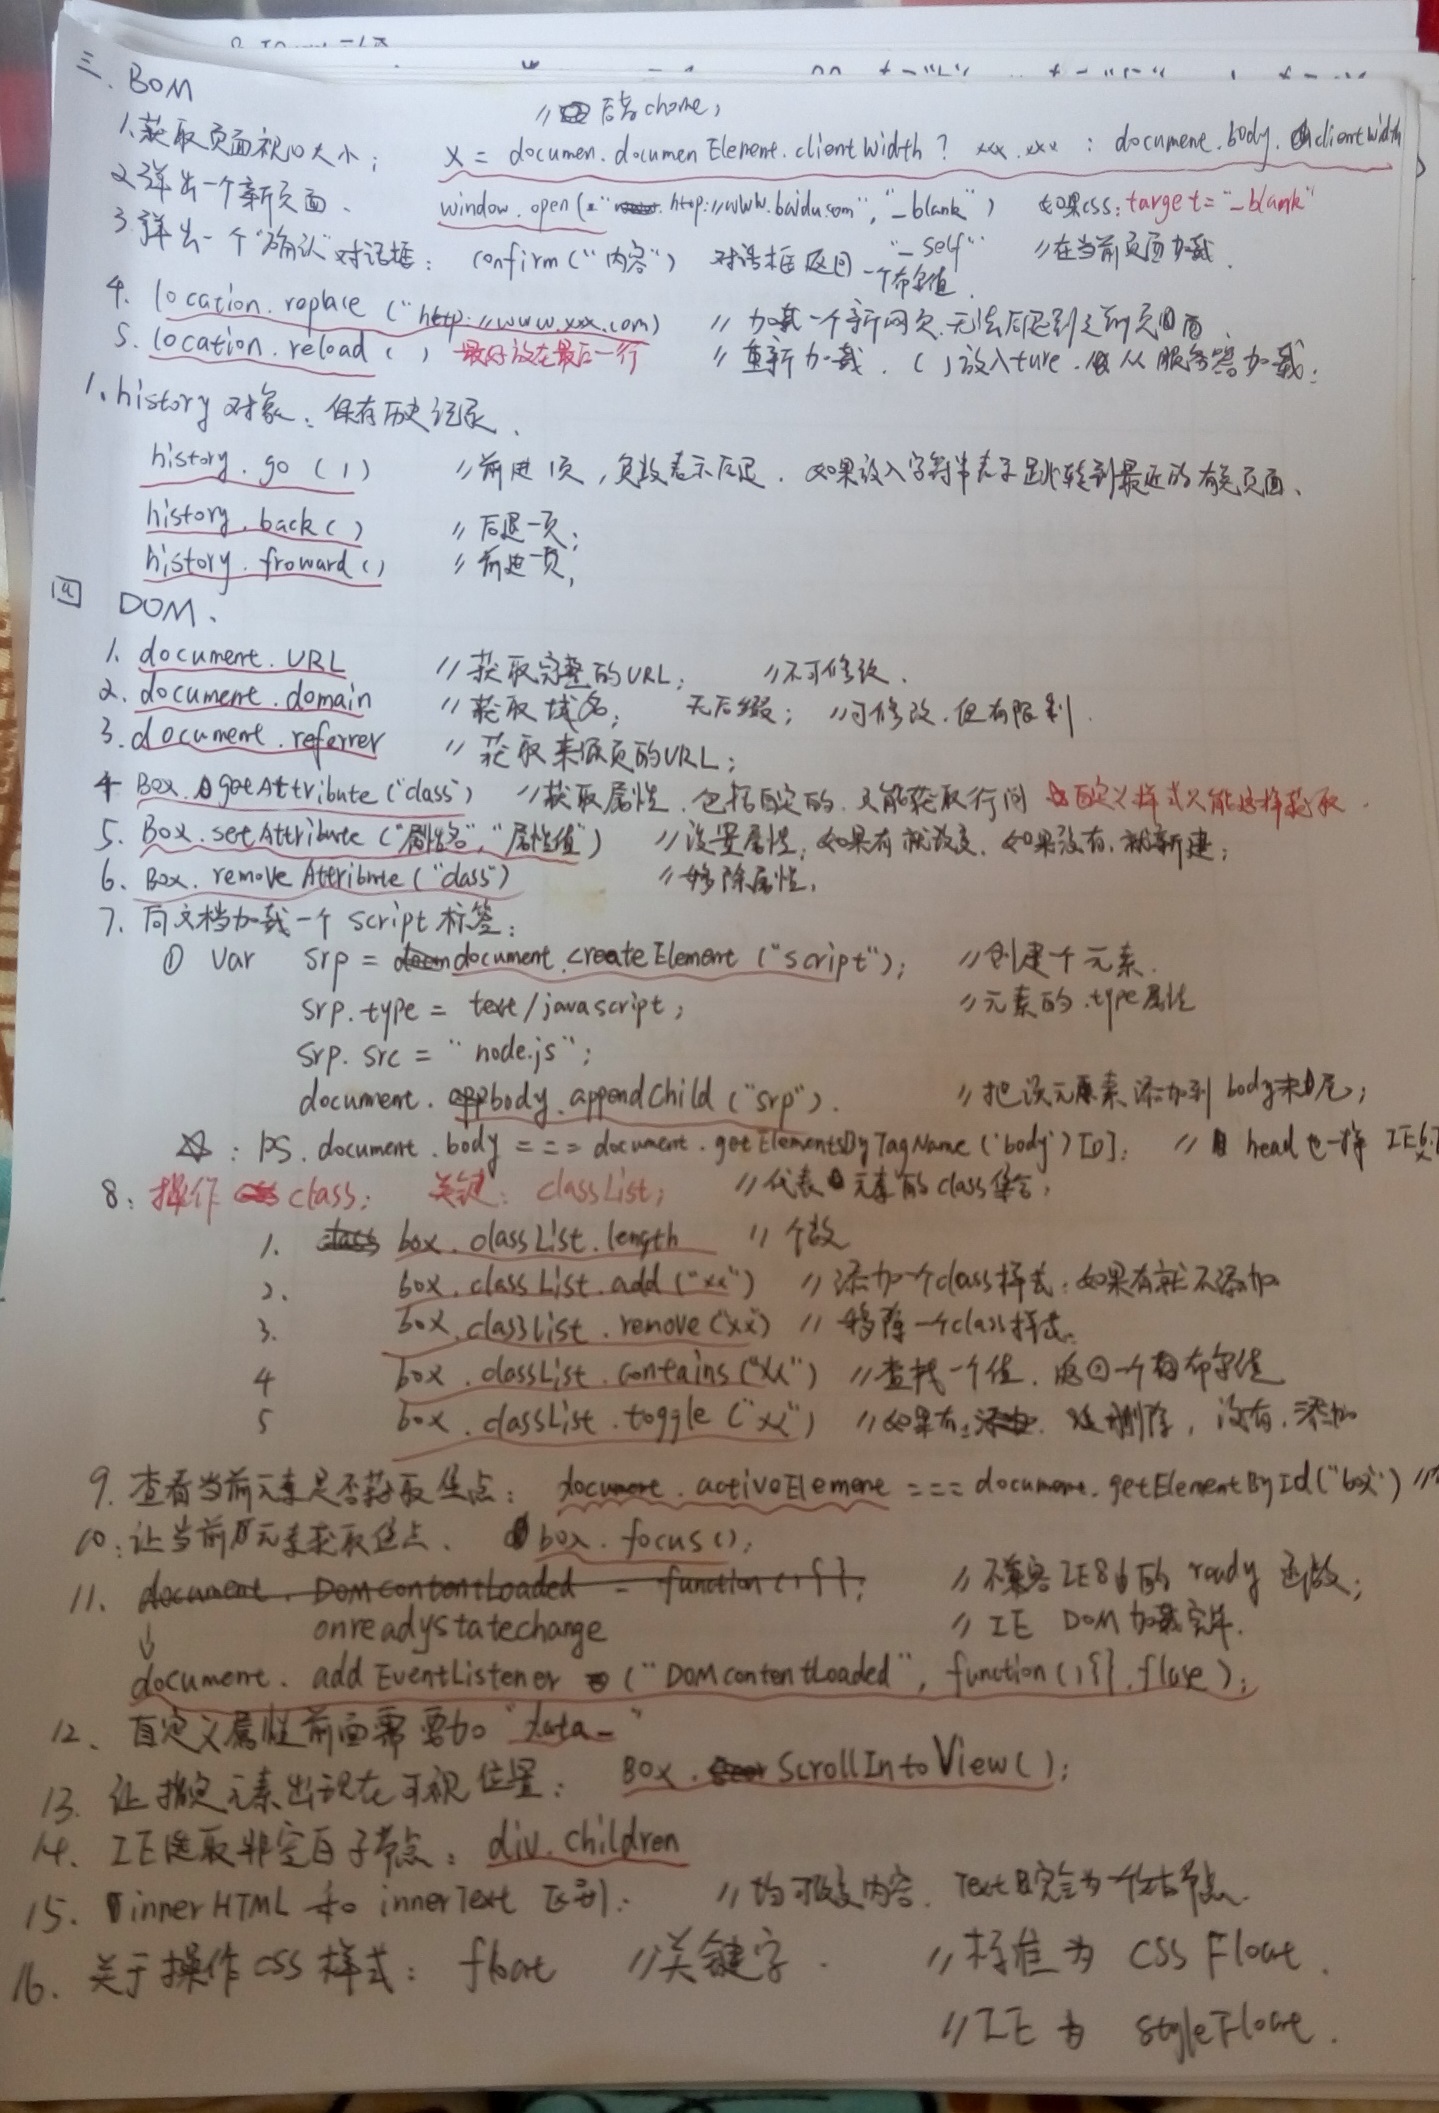 三、BOM
//后者chome;
1.获取页面视口大小; X = documen.documenElement.clientWidth ? xxx.xxx : document.body.clientWidth
2.弹出一个新页面、 window.open("http://www.baidu.com", "_blank") 如果css: target="_blank"
"_self" //在当前页面加载.
3.弹出一个"确认"对话框: confirm("内容") 对话框返回一个布尔值.
4. location.replace ("http://www.xxx.com) //加载一个新网页.无法后退到之前页面.
5. location.reload ( ) 最好放在最后一行 //重新加载. ( )放入ture.从服务器加载;
1.history对象: 保存历史记录、
history.go (1) //前进1页,负数表示后退. 如果放入字符串表示跳转到最近的有关页面、
history.back() //后退一页;
history.froward() //前进一页,
四 DOM.
1. document.URL //获取完整的URL; //不可修改.
2. document.domain //获取域名; 无后缀; //可修改.但有限制.
3. document.referrer //获取来源页的URL;
4 Box.getAttribute("class") //获取属性.包括自定的.只能获取行间 自定义样式只能这样获取.
5. Box.setAttribute ("属性名","属性值") //设置属性;如果有就改变.如果没有.就新建;
6. Box.removeAttribute("class") //移除属性,
7. 向文档加载一个script标签:
① Var srp = document.createElement ("script"); //创建个元素.
srp.type = text/javascript; //元素的.type属性
srp.src = "node.js";
document.body.appendChild ("srp"). //把该元素添加到body末尾;
☆: PS. document.body === document.getElementsByTagName('body')[0]; //head也一样
8: 操作class: 关键: classList; //代表元素的class集合;
1. box.classList.length //个数
2. box.classList.add("xx") //添加一个class样式:如果有就不添加
3. box.classList.remove("xx") //移除一个class样式.
4 box.classList.contains("xx") //查找一个值.返回一个布尔值
5 box.classList.toggle ("xx") //如果有 删除,没有.添加
9. 查看当前元素是否获取焦点: document.activeElement === document.getElementById("box")
10:让当前元素获取焦点、 box.focus();
11. document.DOMContentLoaded = function(){}; //不兼容IE8的ready函数;
onreadystatechange //IE DOM加载完毕.
↓
document.addEventListener ("DOMContentLoaded", function(){},flase);
12、自定义属性前面需要加"data-"
13. 让指定元素出现在可视位置: Box.ScrollIntoView();
14. IE选取非空白子节点: div.children
15. innerHTML和innerText区别: //均可改变内容.
16. 关于操作css样式: float //关键字. //标准为 CSS Float.
//IE为 styleFloat.